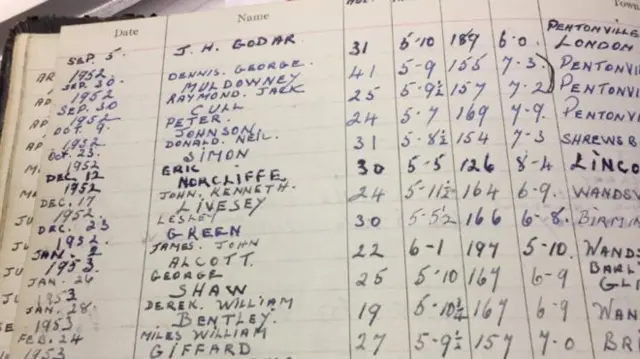 Date Name Town
SEP. 5. 1952 J. H. GODAR 31 5-10 189 6-0. PENTONVILLE LONDON
SEP. 30. 1952 DENNIS. GEORGE. MULDOWNEY 41 5-9 155 7-3. PENTONVI
SEP. 30 1952 RAYMOND. JACK CULL 25 5-9½ 157 7-2 PENTONVI
OCT. 9. 1952 PETER. JOHNSON 24 5-7 169 7-9. PENTONVI
OCT. 23. 1952 DONALD. NEIL. SIMON 31 5-8½ 154 7-3 SHREWSB
DEC 12 1952 ERIC NORCLIFFE 30 5-5 126 8-4 LINCO
DEC. 17 1952. JOHN. KENNETH. LIVESEY 24 5-11½ 164 6-9. WANDSW
DEC. 23 1952. LESLEY GREEN 30 5-5½ 166 6-8. BIRMIN
JAN. 2 1953 JAMES. JOHN ALCOTT. 22 6-1 197 5-10. WANDS
JAN. 26 1953 GEORGE SHAW 25 5-10 167 6-9 BARL GLI
JAN. 28. 1953 DEREK. WILLIAM BENTLEY. 19 5-10¾ 167 6-9 WAN
FEB. 24 1953 MILES WILLIAM GIFFARD 27 5-9½ 157 7-0 BR